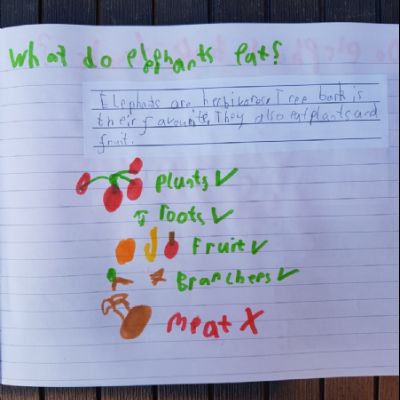 What do elephants eat?
Elephants are herbivores. Tree bark is
their favourite. They also eat plants and
fruit.
plants ✓
roots ✓
Fruit ✓
Branchers ✓
meat X